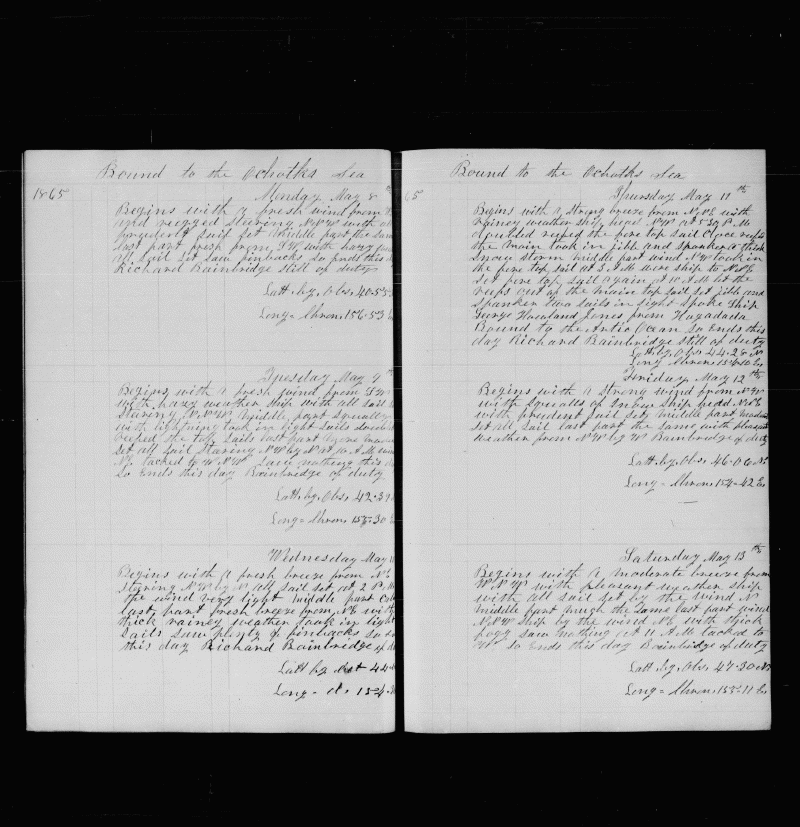 Bound to the Ochotks Sea
1865
Monday May 8
Begins with a fresh wind from
and rugged staring N.N.W with
prudent sail set Middle part the same
last part fresh from S.W. with hazy
all sail set saw finbacks so ends this
Richard Bainbridge still of duty
Latt. by. Obs. 40-55
Long = Chron. 156-53
Tuesday May 9
Begins with a fresh wind from S.W
with hazy weather ship with all sail
staring N.N.W. Middle part squally
with lightning took in light sails double
reefed the top sails last part more
set all sail staring N.W by N at 10 A.M
N.E tacked to W.N.W. Saw nothing this
so Ends this day Bainbridge of duty
Latt. by. Obs. 42-39
Long = Chron. 155-30
Wednesday May 10
Begins with a fresh breeze from N.E
staring N.W. by N all sail set at 2 P.M
the wind very light middle part
last part fresh breeze from N.E with
thick rainey weather took in light
sails saw plenty of finbacks so
this day Richard Bainbridge of
Latt by 44
Long = 154
Bound to the Ochotks Sea
65
Thursday May 11th
Begins with a strong breeze from N.N.E. with
rainey weather ship head N.W at 5.30 P.M.
doubled reefed the fore top sail Close reefed
the main took in jibb and spanker a thick
snow storm middle part wind N.W took in
the fore top sail at 3 A.M. wore ship to N.N.E
set fore top sail again at 10 A.M let the
reefs out of the main top sail set jibb and
spanker two sails in sight spoke Ship
George Howland Jones from Hagadada
Bound to the Artic Ocean so Ends this
day Richard Bainbridge still of duty
Latt. by. Obs. 44-28 N
Long Chron. 156-10 E
Friday May 12th
Begins with a strong wind from N.W
with squalls of snow ship head N.N.E
with prudent sail set middle part
set all sail last part the same with pleasant
weather from N.W by W Bainbridge of duty
Latt. by. Obs. 46-06 N.
Long = Chron. 154-42 E.
Saturday May 13th
Begins with a moderate breeze from
W.N.W with pleasant weather ship
with all sail set by the wind N.
middle part much the same last part wind
N.N.W ship by the wind N.E with thick
fogg saw nothing at 11 A.M tacked to
W. so Ends this day Bainbridge of duty
Latt. by. Obs. 47-30 N.
Long = Chron. 155-11 E.